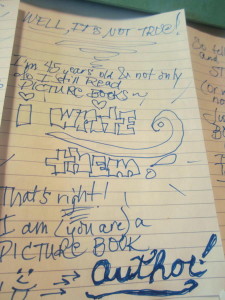 WELL, IT'S NOT TRUE!
I'm 45 years old & not only
do I still Read
PICTURE BOOKS~
I WRITE
them.
That's right!
I am {you are} a
PICTURE BOOK
author!
So
and
ST